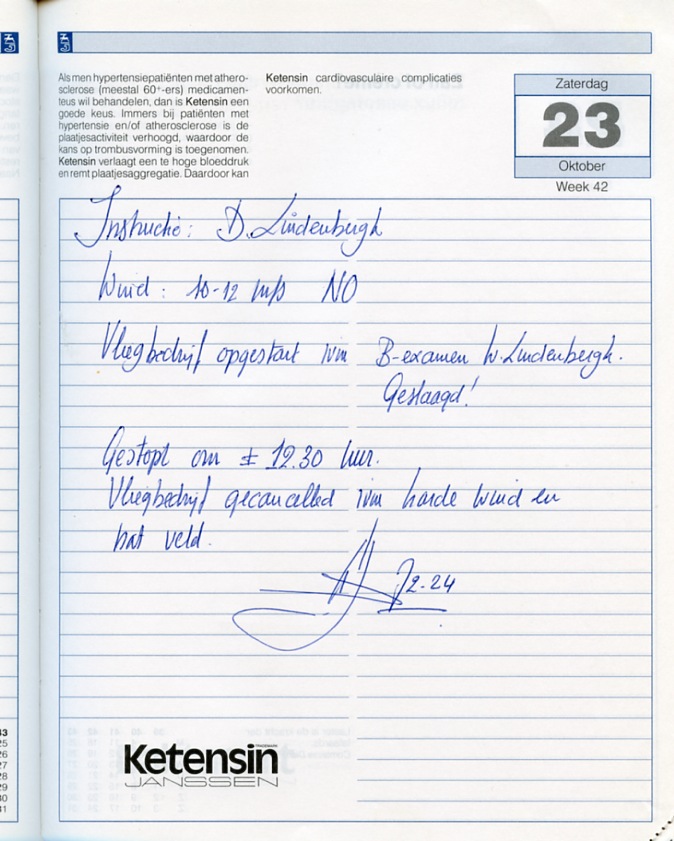 Als men hypertensiepatiënten met athero-
sclerose (meestal 60⁺-ers) medicamen-
teus wil behandelen, dan is Ketensin een
goede keus. Immers bij patiënten met
hypertensie en/of atherosclerose is de
plaatjesactiviteit verhoogd, waardoor de
kans op trombusvorming is toegenomen.
Ketensin verlaagt een te hoge bloeddruk
en remt plaatjesaggregatie. Daardoor kan
Ketensin cardiovasculaire complicaties
voorkomen.
Zaterdag
23
Oktober
Week 42
Instructie: D. Lindenbergh
Wind: 10-12 m/s NO
Vliegbedrijf opgestart ivm B-examen W. Lindenbergh.
Geslaagd!
Gestopt om ± 12.30 uur.
Vliegbedrijf gecancelled ivm harde wind en
nat veld.
J2-24
Ketensin
TRADEMARK
JANSSEN